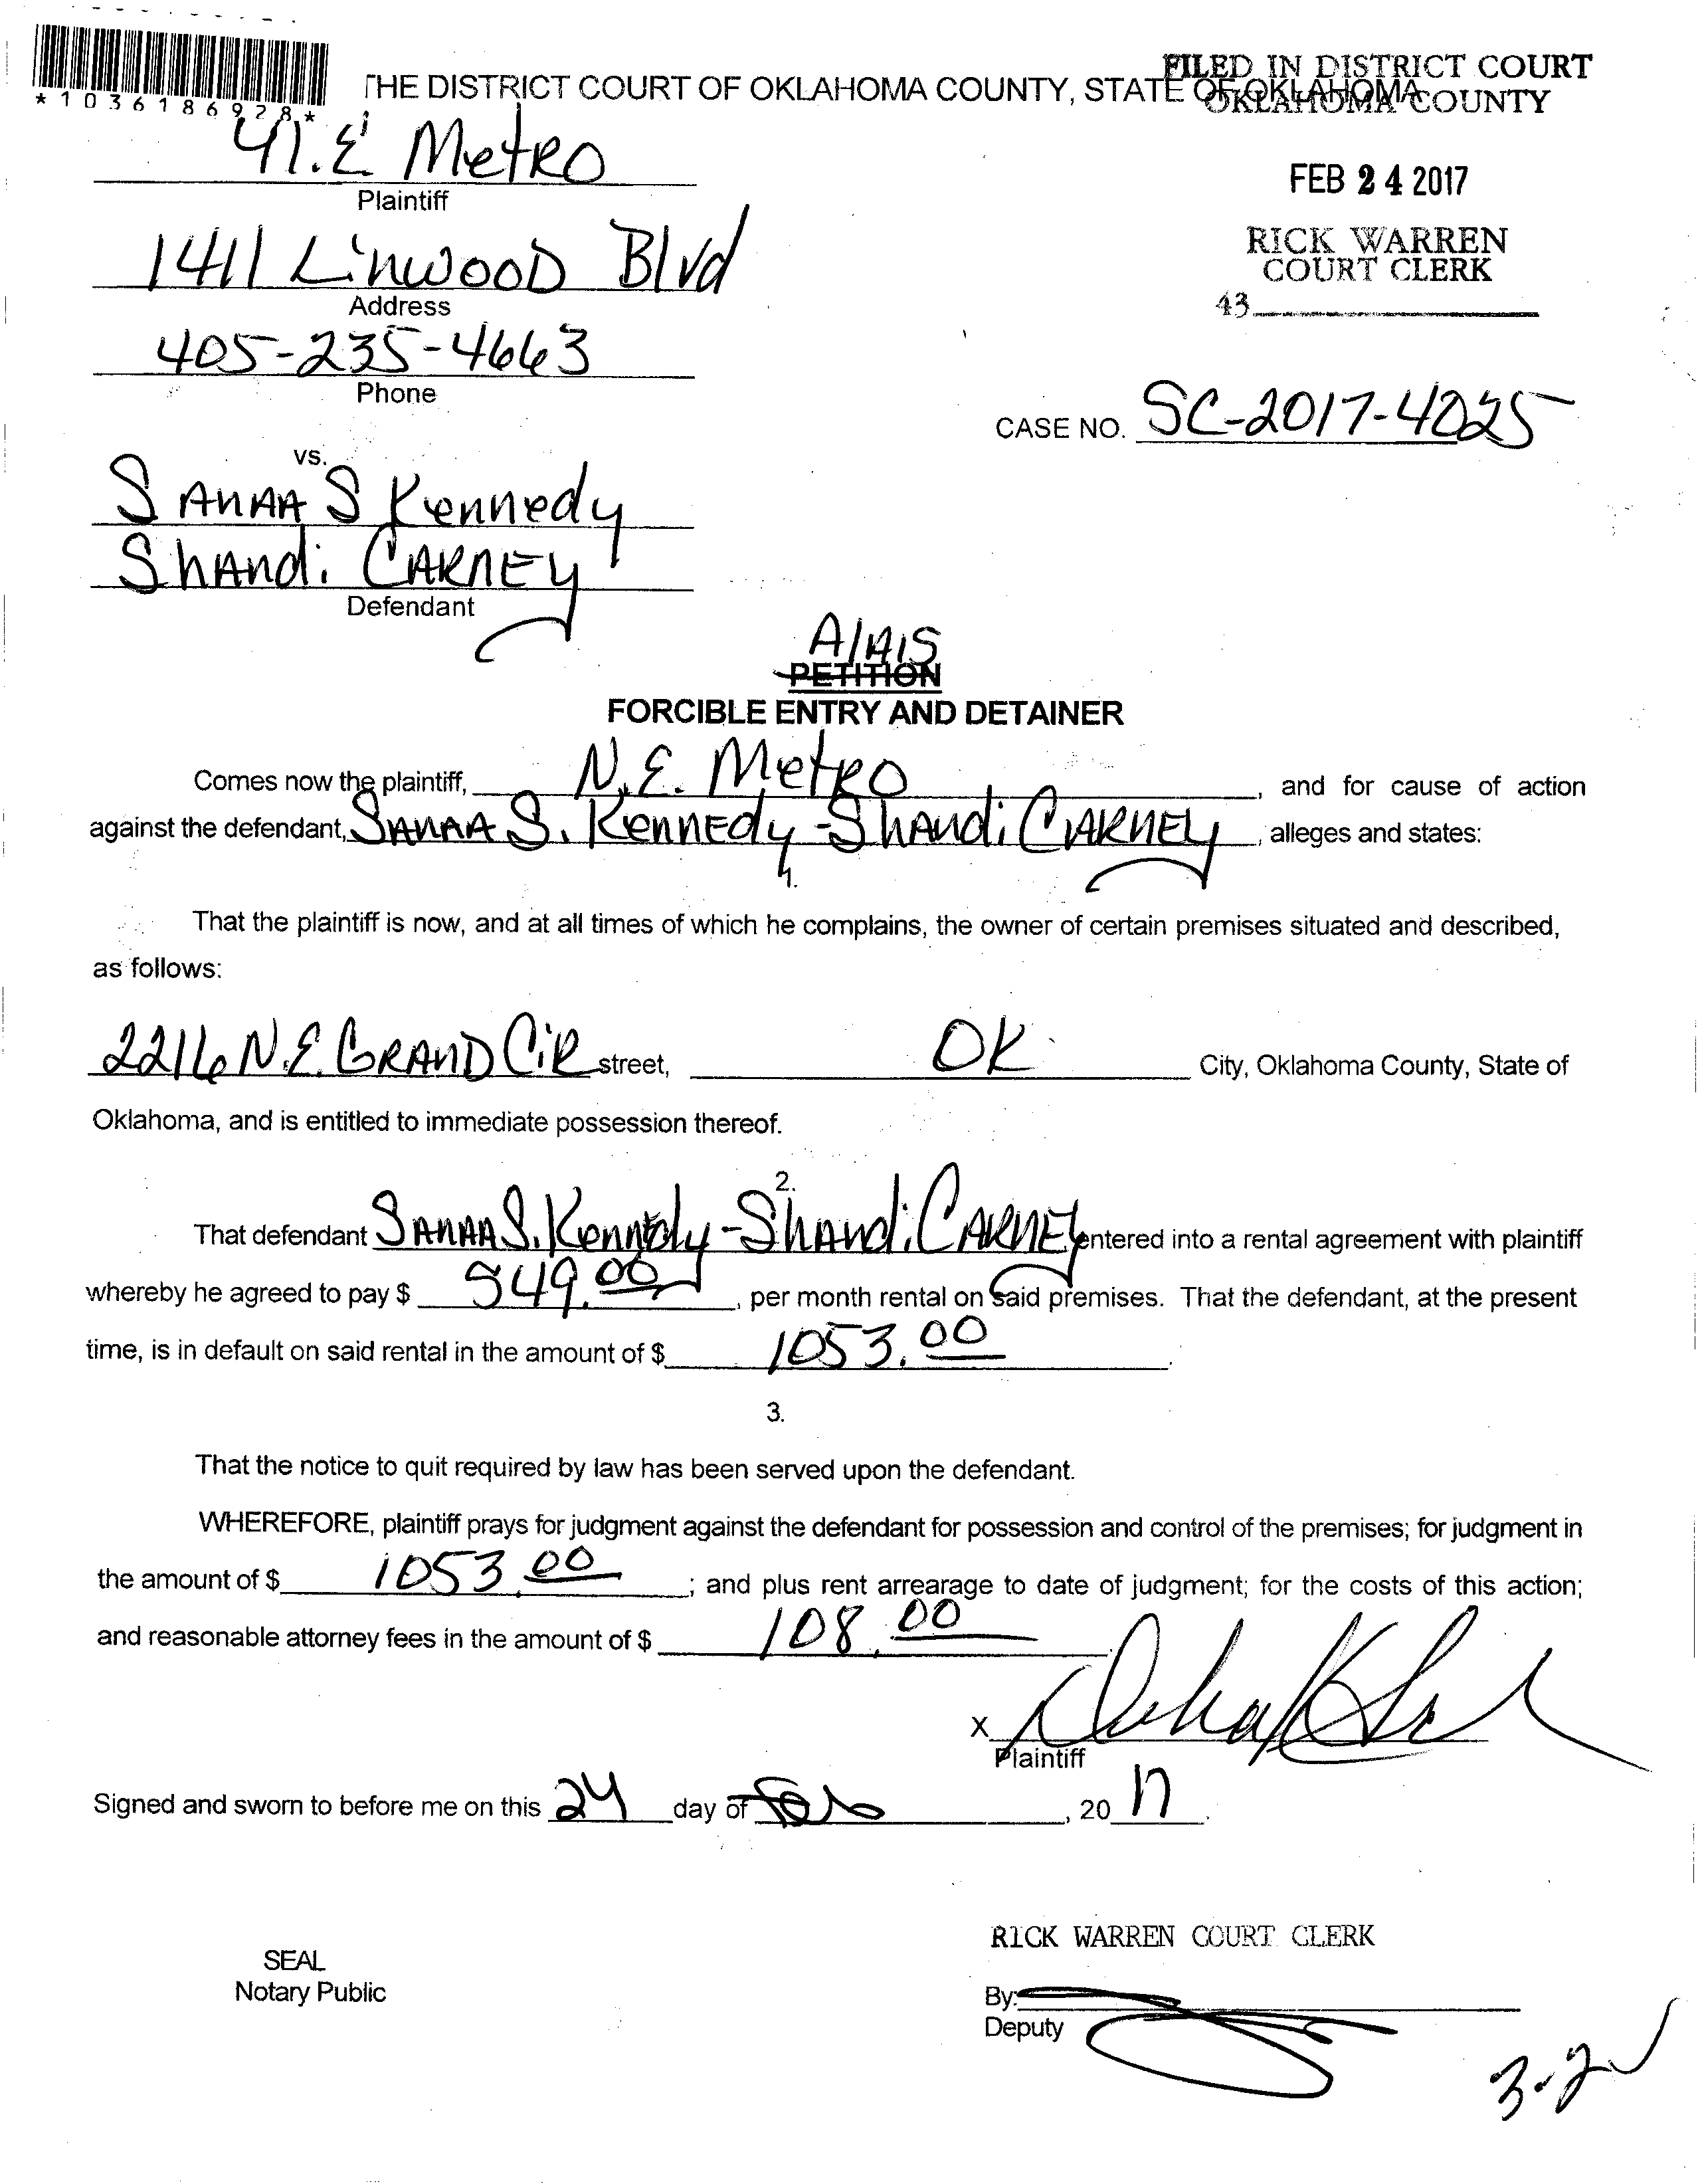 *1036186928*
THE DISTRICT COURT OF OKLAHOMA COUNTY, STATE OF OKLAHOMA
FILED IN DISTRICT COURT
OKLAHOMA COUNTY
FEB 24 2017
RICK WARREN
COURT CLERK
43
N.E Metro
Plaintiff
1411 Linwood Blvd
Address
405-235-4663
Phone
CASE NO. SC-2017-4025
vs.
Sanaa S Kennedy
Shandi Carney
Defendant
Alais
PETITION
FORCIBLE ENTRY AND DETAINER
Comes now the plaintiff, N.E. Metro, and for cause of action
against the defendant, Sanaa S. Kennedy - Shandi Carney, alleges and states:
1.
That the plaintiff is now, and at all times of which he complains, the owner of certain premises situated and described,
as follows:
2216 N.E. Grand Cir street, OK City, Oklahoma County, State of
Oklahoma, and is entitled to immediate possession thereof.
2.
That defendant Sanaa S. Kennedy - Shandi Carney entered into a rental agreement with plaintiff
whereby he agreed to pay $ 549.00, per month rental on said premises. That the defendant, at the present
time, is in default on said rental in the amount of $ 1053.00.
3.
That the notice to quit required by law has been served upon the defendant.
WHEREFORE, plaintiff prays for judgment against the defendant for possession and control of the premises; for judgment in
the amount of $ 1053.00; and plus rent arrearage to date of judgment; for the costs of this action;
and reasonable attorney fees in the amount of $ 108.00.
X
Plaintiff
Signed and sworn to before me on this 24 day of Feb, 20 17.
RICK WARREN COURT CLERK
SEAL
Notary Public
By:
Deputy
3-2